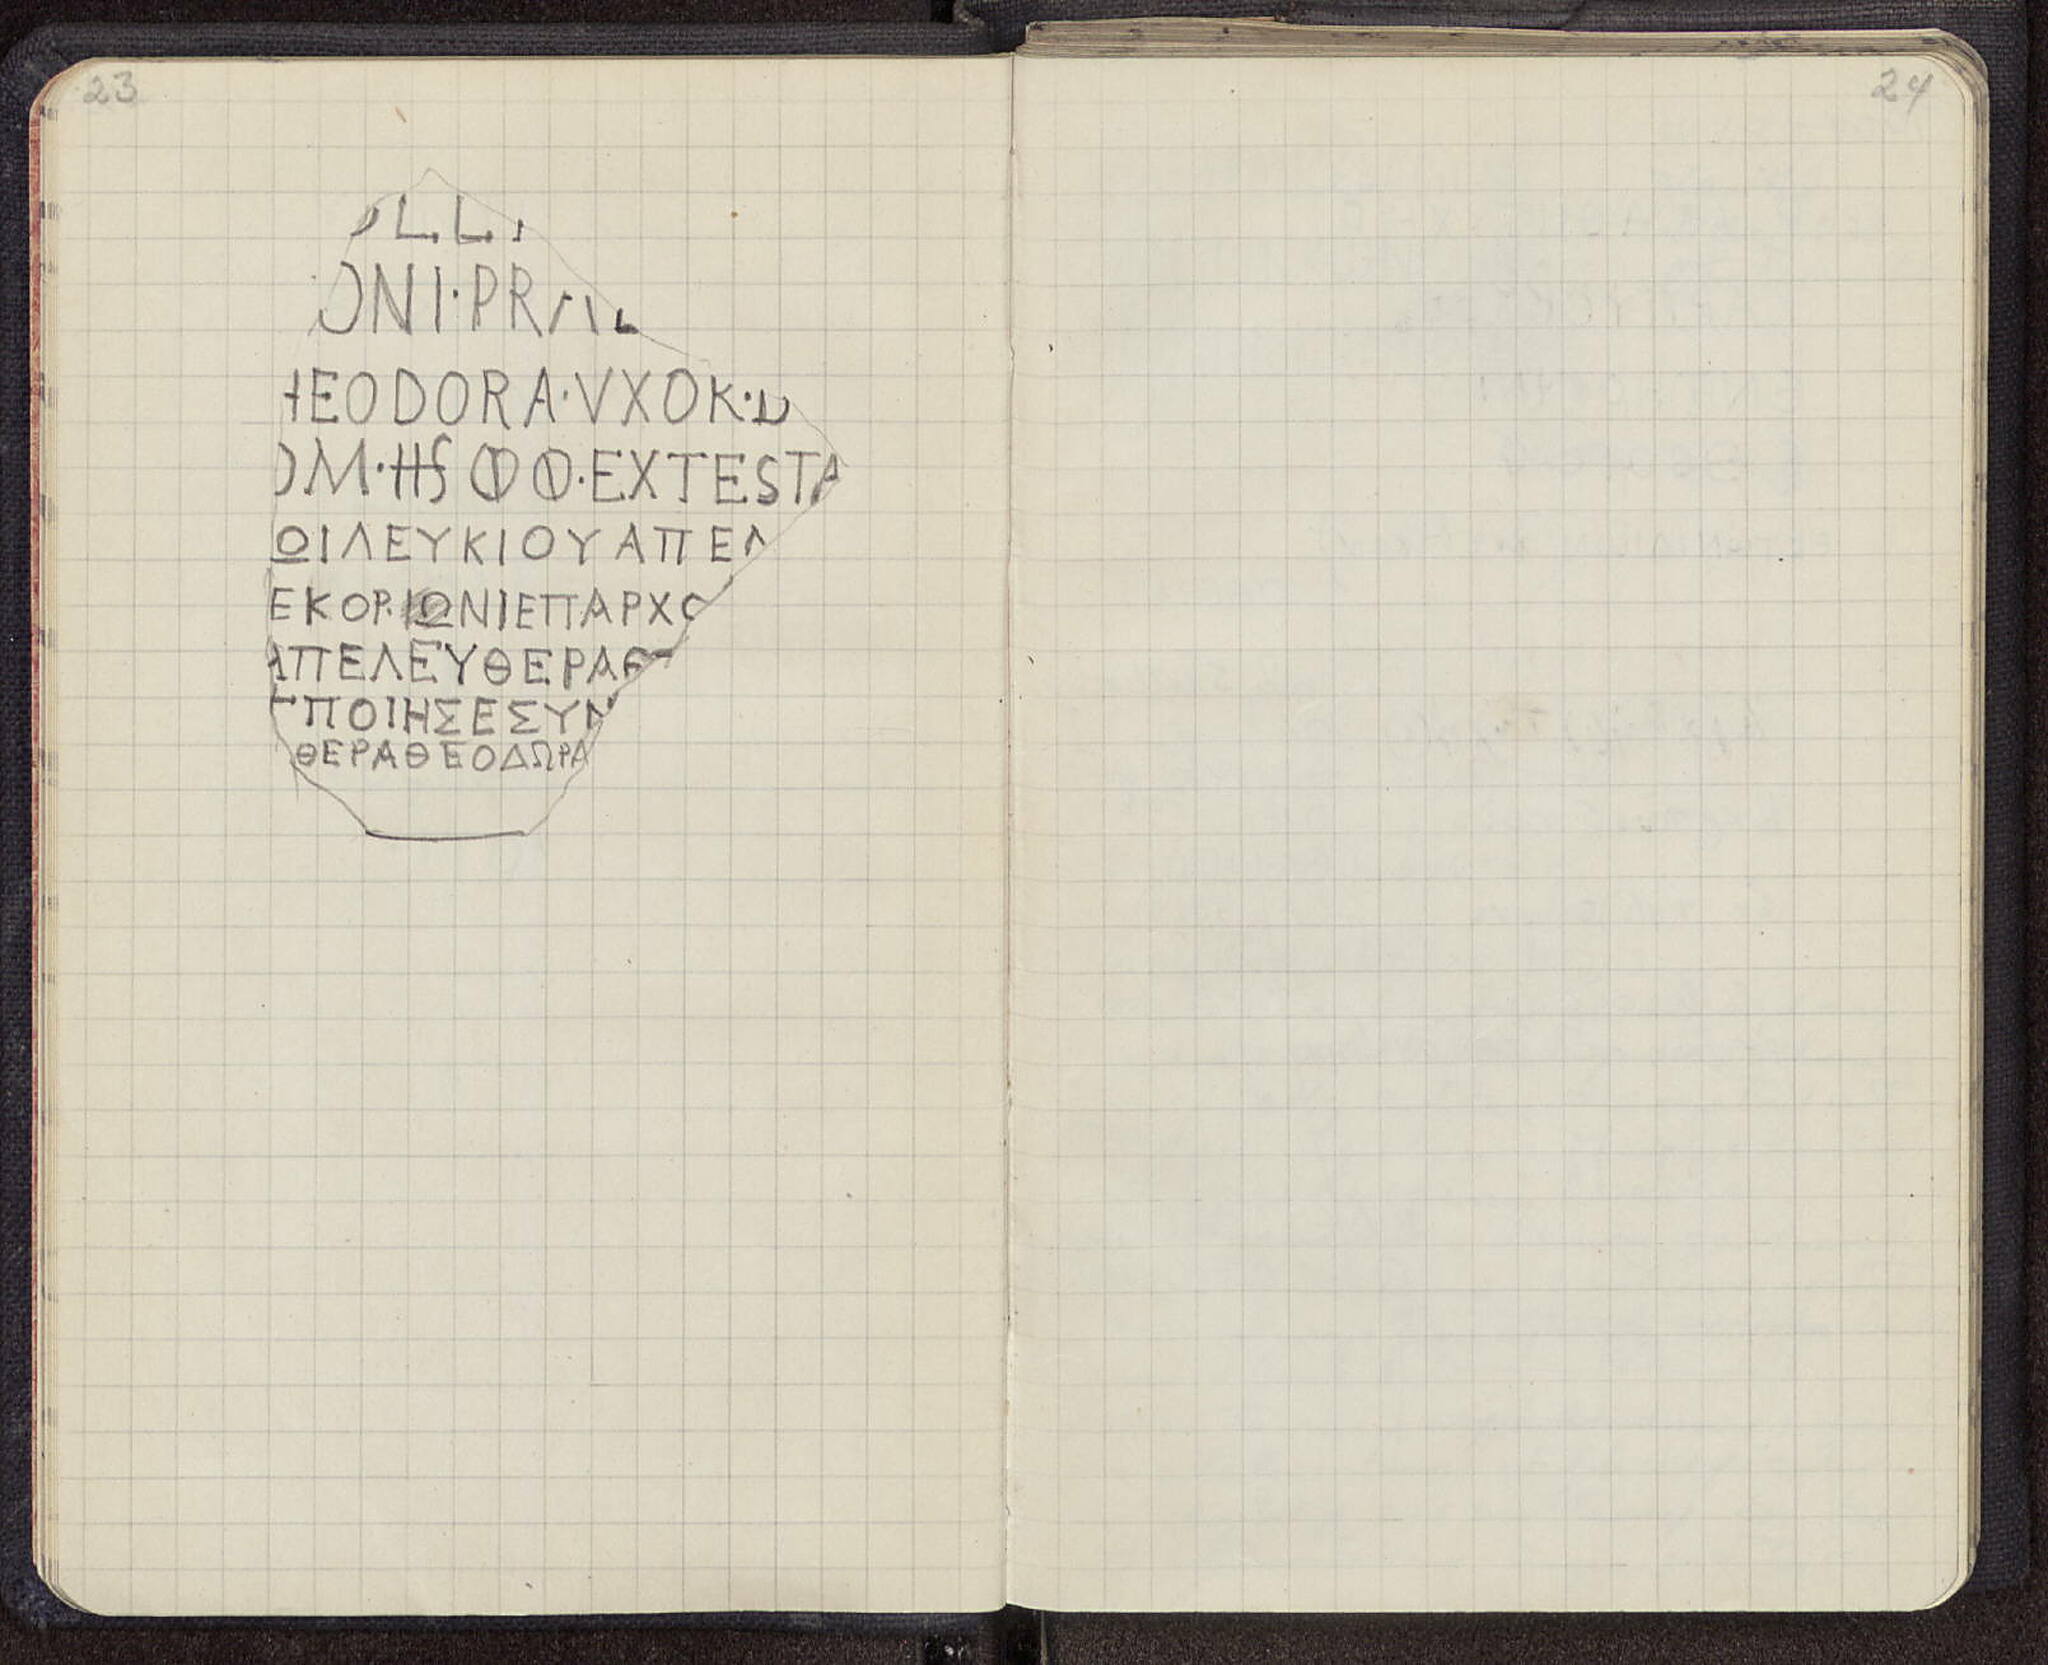 23
24
OLL
ONI·PR
HEODORA·VXOR·D
OM·HS ⵀⵀ·EXTESTA
ΩΙΛΕΥΚΙΟΥΑΠΕΛ
ΕΚΟΡ.ΙΩΝΙΕΠΑΡΧΟ
ΑΠΕΛΕΥΘΕΡΑΘ
ΕΠΟΙΗΣΕΣΥΝ
ΘΕΡΑΘΕΟΔΩΡΑ